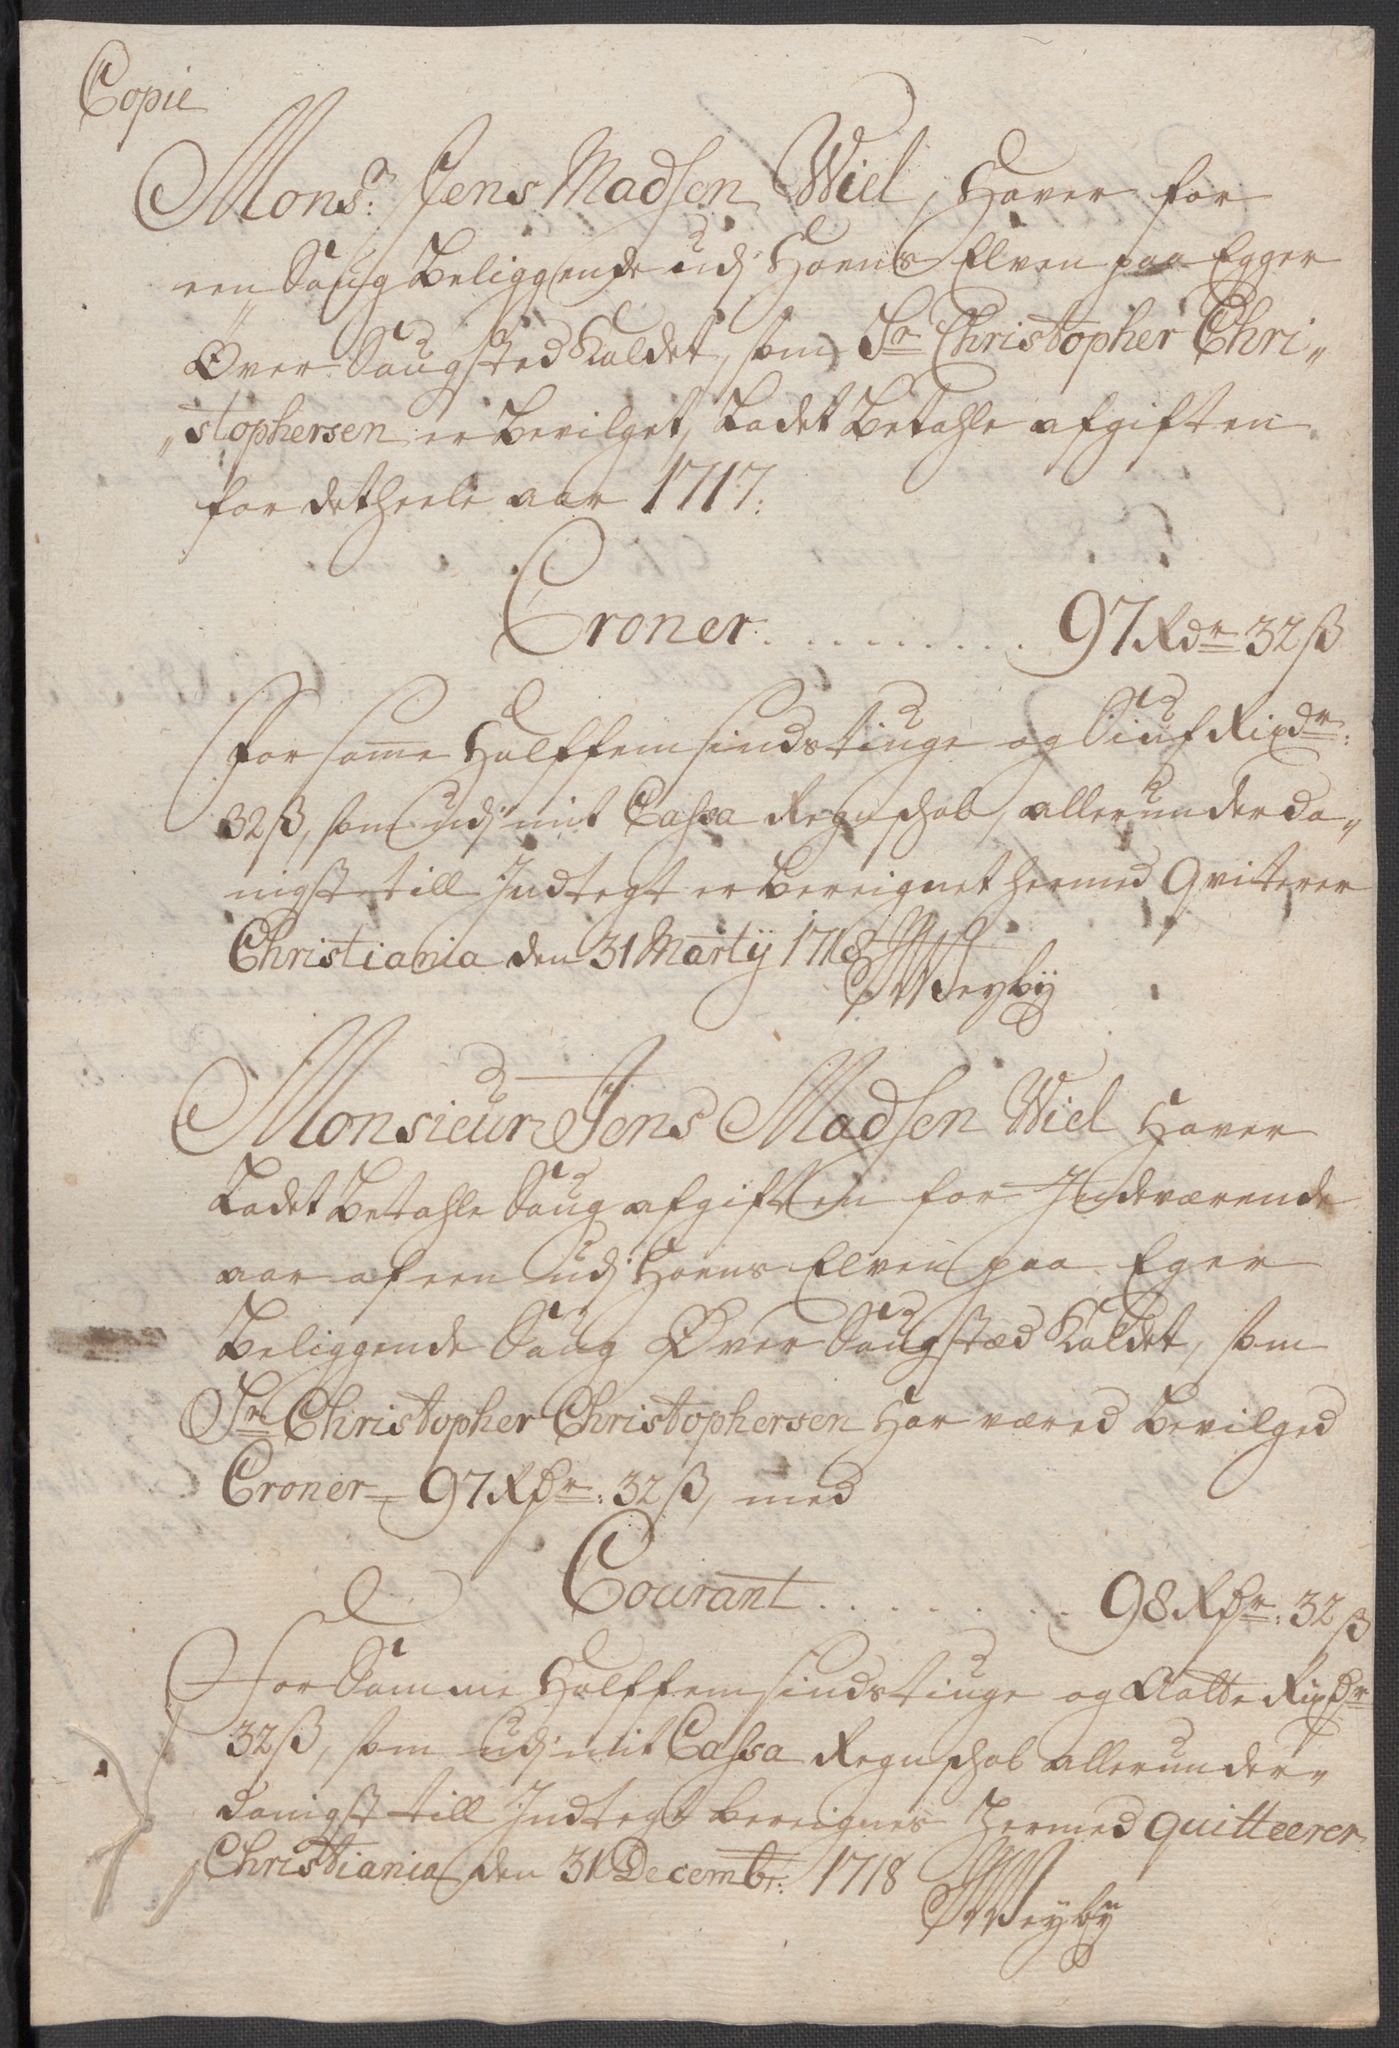 Copie
Monsr: Jens Madsen Wiel, Haver for
een Saug Beliggende udj Hoens Elven paa Egger
Øver Saugsted Kaldet, som Sr Christopher Chri„
„stophersen er Bevilget, Ladet Betahle afgiften
for det heele aar 1717:
Croner . . . . . . . . . 97 Rdr 32 ß
for same Halffemsindstiuge og Siuf Rixdr:
32 ß, som udj mit Cassa Regnschab, allerunderda„
nigst till Indtegt er bereignet hermed Qviterer
Christiania den 31 Martij 1718
Meyby
Monsieur Jens Madsen Wiel Haver
Ladet Betahle Saug afgiften for Indeværende
aar af een udj Hoens Elven paa Eger
Beliggende Saug Øver Saugstæd Kaldet, som
Sr Christopher Christophersen Har været Bevilged
Croner 97 Rdr: 32 ß, med
Courant . . . . . . . . 98 Rdr: 32 ß
For Samme Halffemsindstiuge og Aatte Rixdr
32 ß, som udj mit Cassa Regnschab allerunder„
danigst till Indtegt bereignes Hermed quitteerer
Christiania den 31 Decembr: 1718
Meyby